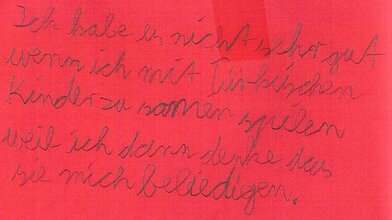 Ich habe es nicht sehr gut
wenn ich mit Türkischen
Kinder zu samen spielen
weil ich dann denke das
sie mich beliedigen.